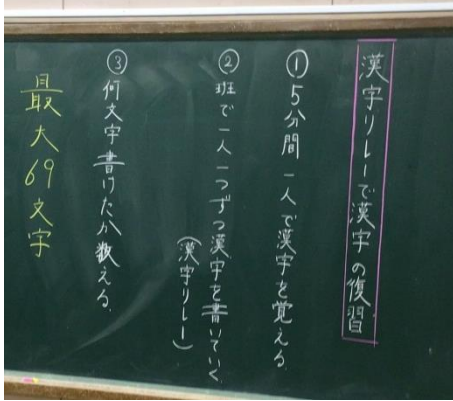 漢字リレーで漢字の復習
① 5分間 一人で漢字を覚える
② 班で一人一つずつ漢字を書いていく
(漢字リレー)
③ 何文字書けたか数える.
最大69文字